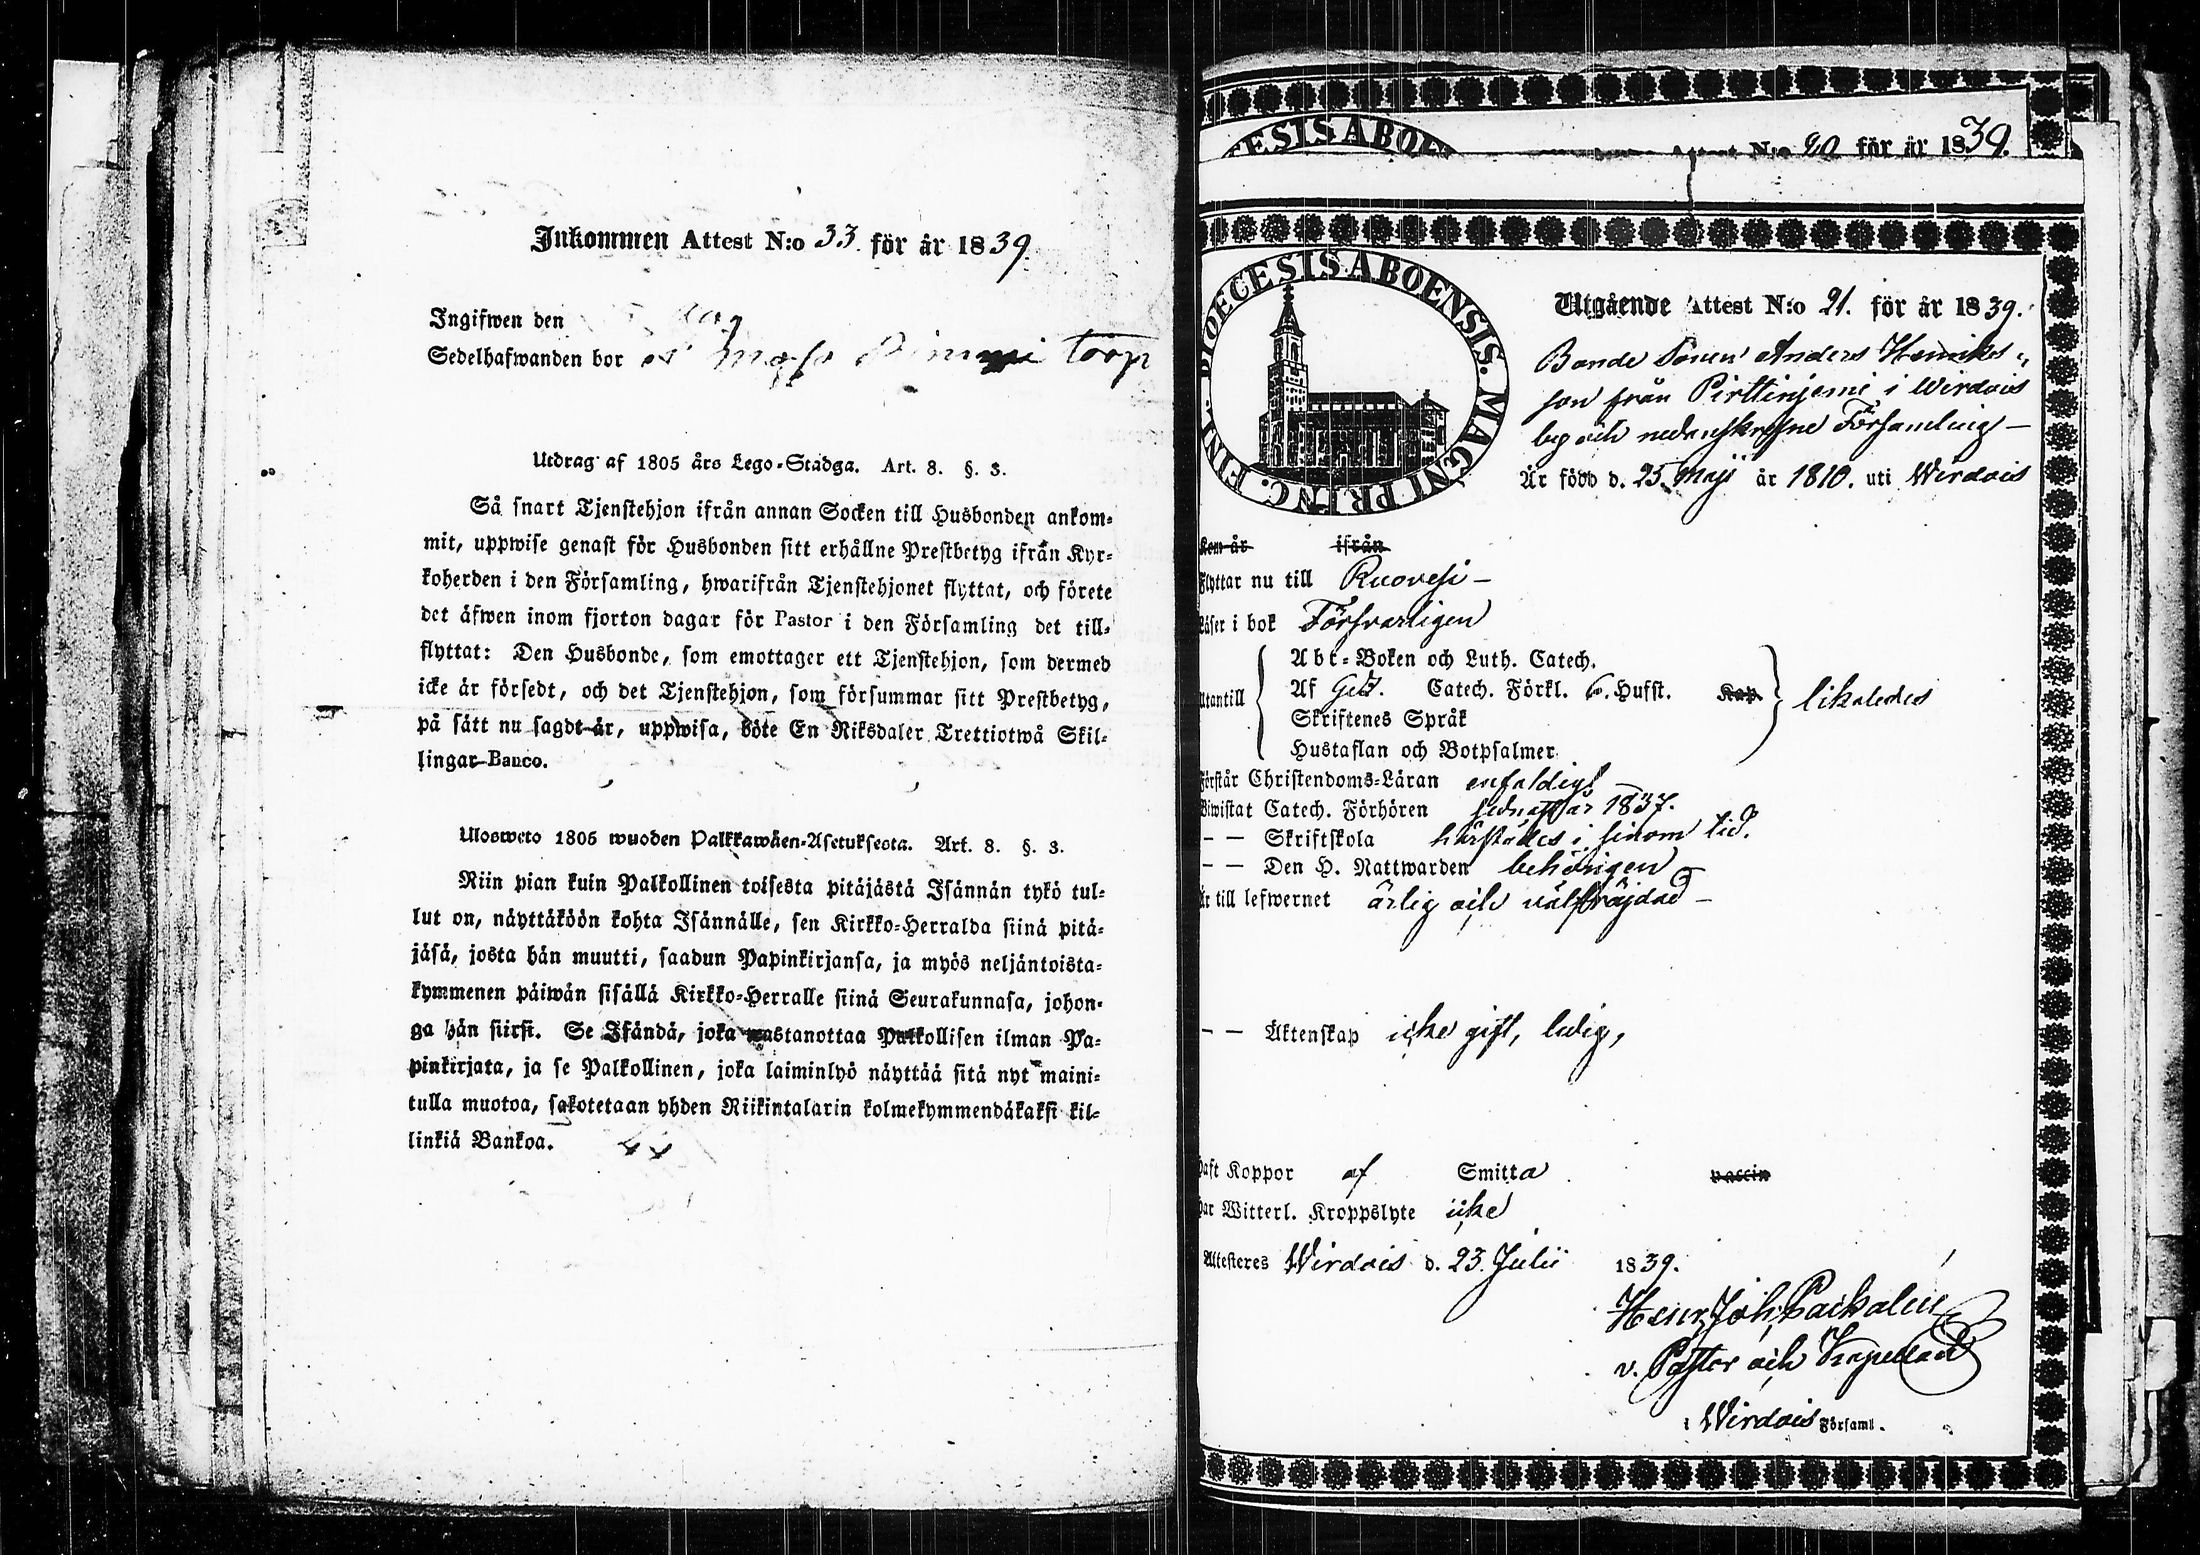 Inkommen Attest N:o 33. för år 1839.
Ingifwen den Aug
Sedelhafwanden bor torp
Utdrag af 1805 års Lego-Stadga. Art. 8. §. 3.
Så snart Tjenstehjon ifrån annan Socken till Husbonden ankom-
mit, uppwise genast för Husbonden sitt erhållne Prestbetyg ifrån Kyr-
koherden i den Församling, hwarifrån Tjenstehjonet flyttat, och förete
det äfwen inom fjorton dagar för Pastor i den Församling det till-
flyttat: Den Husbonde, som emottager ett Tjenstehjon, som dermed
icke är försedt, och det Tjenstehjon, som försummar sitt Prestbetyg,
på sätt nu sagdt är, uppwisa, böte En Riksdaler Trettiotwå Skil-
lingar Banco.
Ulosweto 1805 wuoden Palkkawäen-Asetuksesta. Art. 8. §. 3.
Niin pian kuin Palkollinen toisesta pitäjästä Isännän tykö tul-
lut on, näyttäköön kohta Isännälle, sen Kirkko-Herralda siinä pitä-
jäsä, josta hän muutti, saadun Papinkirjansa, ja myös neljäntoista-
kymmenen päiwän sisällä Kirkko-Herralle siinä Seurakunnasa, johon-
ga hän siirsi. Se Isändä, joka wastanottaa Palkollisen ilman Pa-
pinkirjata, ja se Palkollinen, joka laiminlyö näyttää sitä nyt maini-
tulla muotoa, sakotetaan yhden Riikintalarin kolmekymmendäkaksi kil-
linkiä Bankoa.
ESIS ABOEN
Attest N:o 20 för år 1839.
DIOECESIS ABOENSIS. MAGNI PRINC. FINL.
Utgående Attest N:o 21. för år 1839.
Bonde Sonen Anders Henriks-
son från Pirttinjemi i Wirdois
by och nedanskrefne Församling—
Är född d. 25 Maji år 1810. uti Wirdois
Kom år ifrån
Flyttar nu till Ruovesi—
Läser i bok Försvarligen
Utantill
Abc-Boken och Luth. Catech.
Af Ged. Catech. Förkl. 6. Hufst. Kap.
Skriftenes Språk
Hustaflan och Botpsalmer
likaledes
Förstår Christendoms-Läran enfaldigt—
Biwistat Catech. Förhören sednast år 1837.
— — Skriftskola härstädes i sinom tid.
— — Den H. Nattwarden behörigen
Är till lefwernet ärlig och välfräjdad—
— — Äktenskap icke gift, ledig,
Haft Koppor af Smitta vaccin
Har Witterl. Kroppslyte icke
Attesteres Wirdois d. 23. Julii 1839.
Henr. Joh. Paikalén
v. Pastor och Kapellan
i Wirdois Församl.